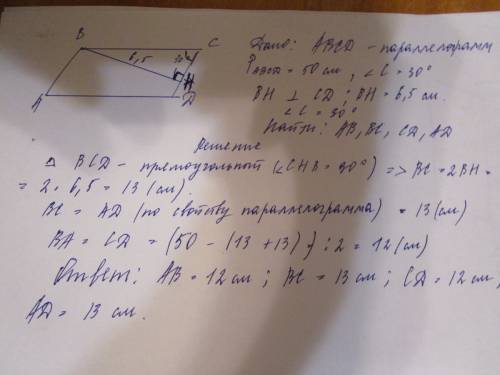 B
C
6,5
30°
H
A
D
Дано: ABCD - параллелограмм
Pавсд = 50 см, ∠C = 30°
BH ⊥ CD; BH = 6,5 см.
∠C = 30°
Найти: AB, BC, CD, AD
Решение
Δ BCD - прямоугольной (∠CHB = 90°) => BC = 2BH =
= 2 · 6,5 = 13 (см).
BC = AD (по свойству параллелограмма) = 13 (см)
BA = CD = (50 - (13 + 13)) : 2 = 12 (см)
Ответ: AB = 12 см; BC = 13 см; CD = 12 см,
AD = 13 см.